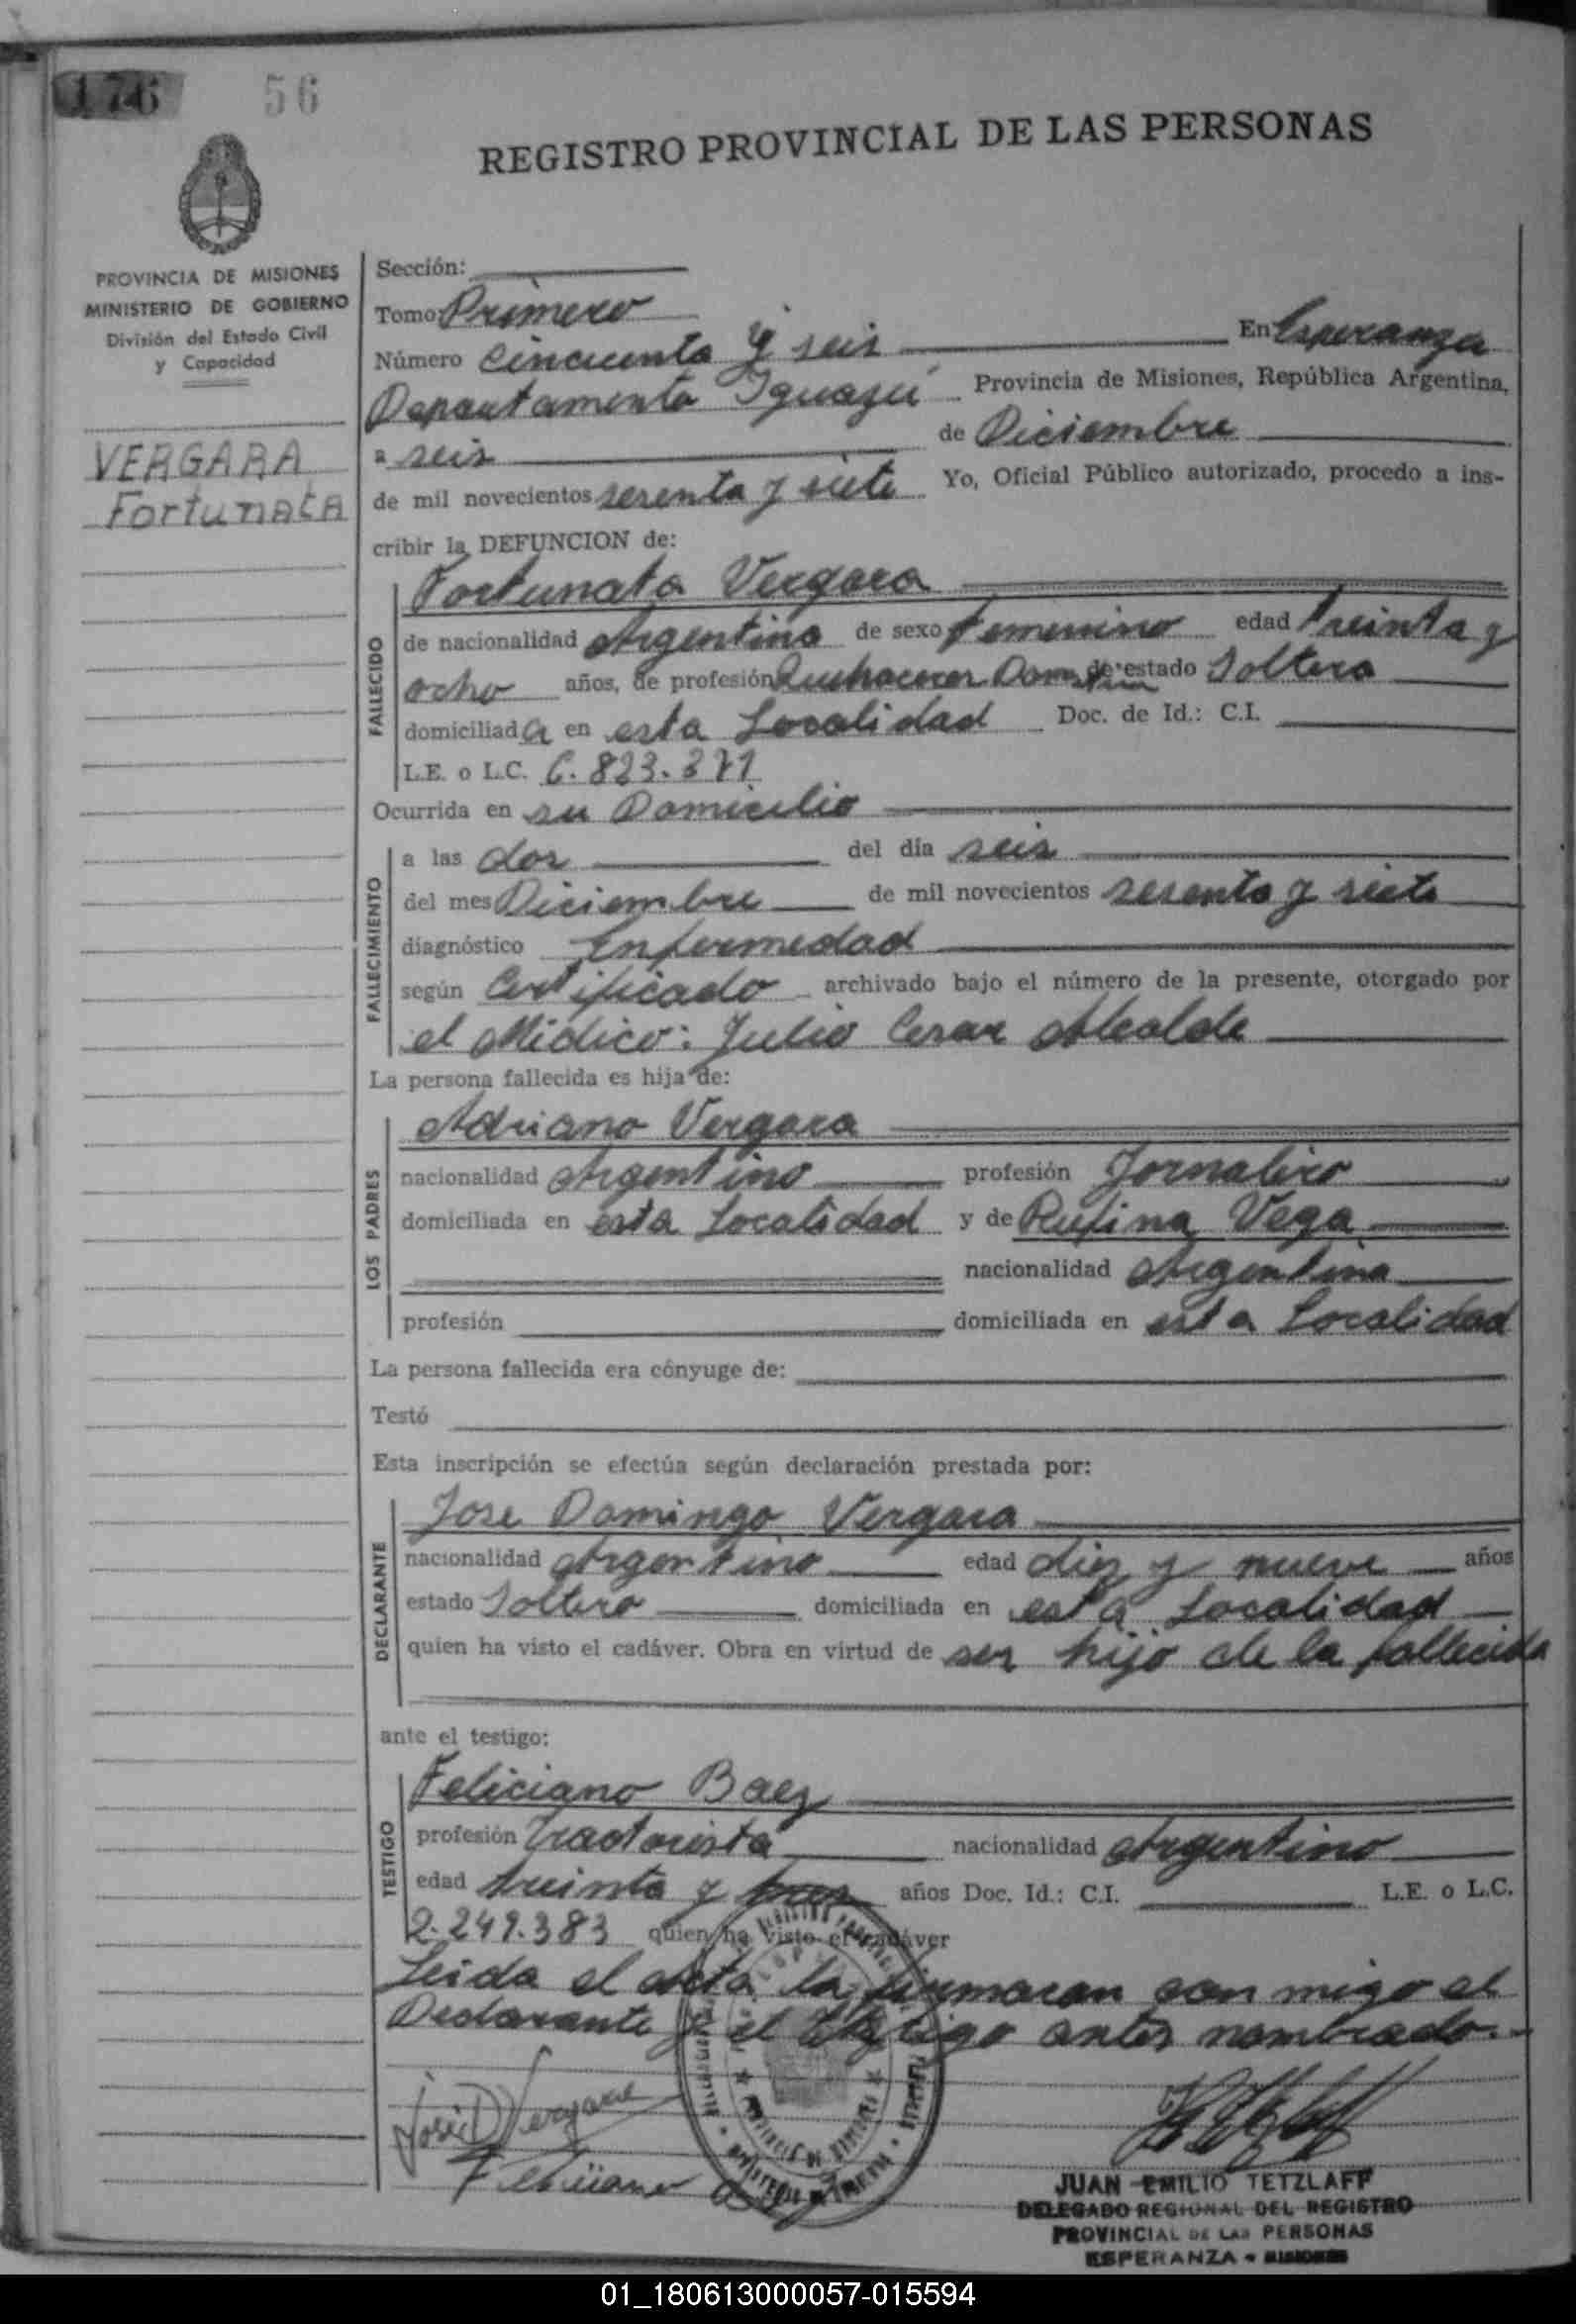 176 56
REGISTRO PROVINCIAL DE LAS PERSONAS
PROVINCIA DE MISIONES
MINISTERIO DE GOBIERNO
División del Estado Civil
y Capacidad
VERGARA
Fortunata
Sección:
Tomo: Primero
Número Cincuenta y seis En Esperanza
Departamento Iguazú Provincia de Misiones, República Argentina,
a seis de Diciembre
de mil novecientos sesenta y siete Yo, Oficial Público autorizado, procedo a ins-
cribir la DEFUNCION de:
FALLECIDO
Fortunata Vergara
de nacionalidad Argentina de sexo femenino edad treinta y
ocho años, de profesión Quehaceres Domestica de estado Soltera
domiciliada en esta Localidad Doc. de Id.: C.I.
L.E. o L.C. 6.823.371
Ocurrida en su Domicilio
FALLECIMIENTO
a las dos del día seis
del mes Diciembre de mil novecientos sesenta y siete
diagnóstico Enfermedad
según Certificado archivado bajo el número de la presente, otorgado por
el Médico: Julio Cesar Alcalde
La persona fallecida es hija de:
LOS PADRES
Adriano Vergara
nacionalidad Argentino profesión Jornalero
domiciliada en esta Localidad y de Rufina Vega
nacionalidad Argentina
profesión domiciliada en esta Localidad
La persona fallecida era cónyuge de:
Testó
Esta inscripción se efectúa según declaración prestada por:
DECLARANTE
Jose Domingo Vergara
nacionalidad Argentino edad diez y nueve años
estado Soltero domiciliada en esta Localidad
quien ha visto el cadáver. Obra en virtud de ser hijo de la fallecida
ante el testigo:
TESTIGO
Feliciano Baez
profesión Tractorista nacionalidad Argentino
edad treinta y tres años Doc. Id.: C.I. L.E. o L.C.
2.249.383 quien ha visto el cadáver
Leida el acta la firmaran con migo el
Declarante y el testigo antes nombrado.-
José D Vergara
Feliciano
JUAN EMILIO TETZLAFF
DELEGADO REGIONAL DEL REGISTRO
PROVINCIAL DE LAS PERSONAS
ESPERANZA - MISIONES
01_180613000057-015594